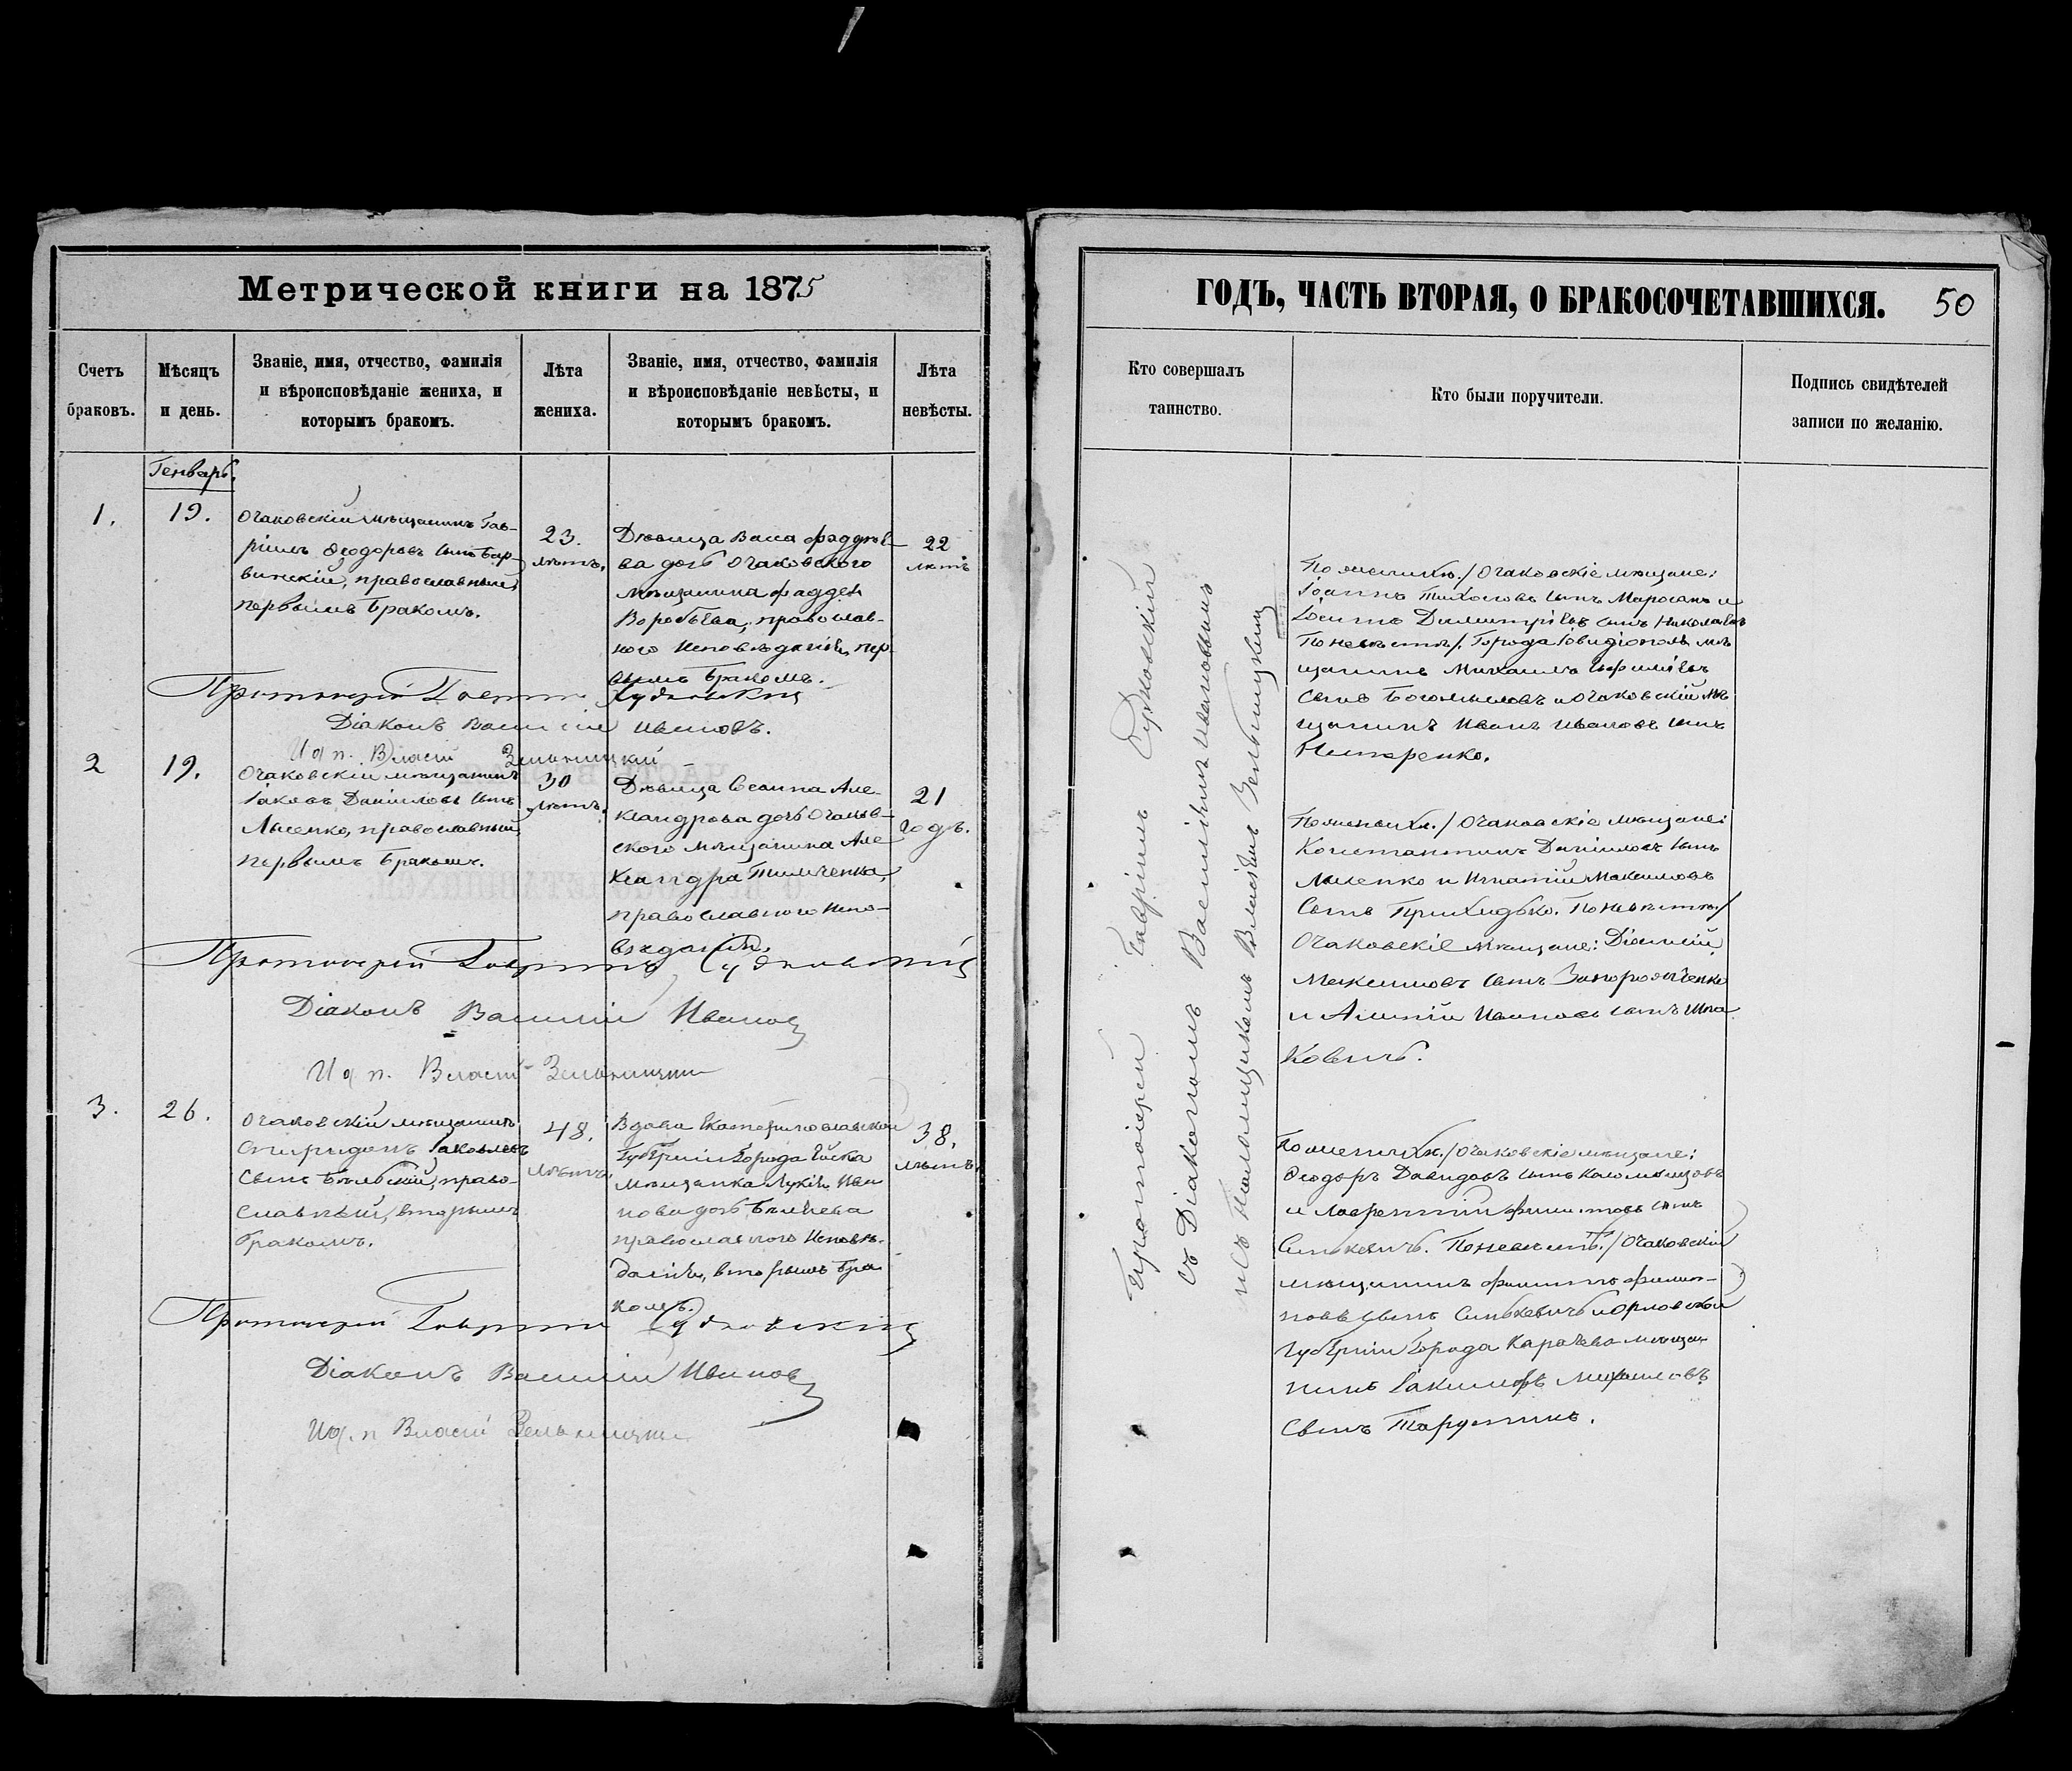 Метрической книги на 1875
Счетъ
браковъ.
Мѣсяцъ
и день.
Званіе, имя, отчество, фамилія
и вѣроисповѣданіе жениха, и
которымъ бракомъ.
Лѣта
жениха.
Званіе, имя, отчество, фамилія
и вѣроисповѣданіе невѣсты, и
которымъ бракомъ.
Лѣта
невѣсты.
Генварь.
1.
19.
Очаковскій мѣщанинъ Гав-
ріилъ Ѳеодоровъ сынъ Бар-
винскій, православный,
первымъ бракомъ.
23.
лѣтъ.
Дѣвица Васса Фаддѣе-
ва дочь Очаковского
мѣщанина Фаддея
Воробьева, православ-
ного исповѣданія, пер-
вымъ бракомъ.
22
лѣтъ
Протоіерей Гавріилъ Судковскій
Діаконъ Василій Ивановъ.
И д п. Власій Зельницкій
2
19.
Очаковскій мѣщанинъ
Іаковъ Даніиловъ сынъ
Лысенко, православный
первымъ бракомъ.
30
лѣтъ.
Дѣвица Але-
ксандрова дочь Очаков-
ского мѣщанина Але
ксандра Тимченка,
православного испо-
вѣданія.
21
годъ.
Протоіерей Гавріилъ Судковскій
Діаконъ Василій Ивановъ
И д п. Власій Зельницкій
3.
26.
Очаковскій мѣщанинъ
Спиридонъ Іаковлевъ
сынъ Бѣльскій, право-
славный, вторымъ
бракомъ.
48.
лѣтъ.
Вдова Екатеринославской
Губерніи города
мѣщанка Лукія Ива
нова дочь
православного исповѣ-
данія, вторымъ бра
комъ.
38.
лѣтъ.
Протоіерей Гавріилъ Судковскій
Діаконъ Василій Ивановъ
И д. п Власій Зельницкій
ГОДЪ, ЧАСТЬ ВТОРАЯ, О БРАКОСОЧЕТАВШИХСЯ.
50
Кто совершалъ
таинство.
Кто были поручители.
Подпись свидѣтелей
записи по желанію.
Протоіерей Гавріилъ Судковскій
съ Діакономъ Василіемъ Ивановымъ
и съ Псаломщикомъ Власіемъ Зельницкимъ
По женихѣ./ Очаковскіе мѣщане:
Іоаннъ Тихоновъ сынъ и
Іосифъ Димитріевъ сынъ Николаевъ
По невѣстѣ/. Города Овидіополя мѣ
щанинъ Михаилъ
сынъ Богомыловъ и Очаковскій мѣ
щанинъ Иванъ Ивановъ сынъ
Нестеренко.
По женихѣ./ Очаковскіе мѣщане:
Константинъ Даніиловъ сынъ
Лысенко и Игнатій Максимовъ
сынъ Приходько. По невѣстѣ./
Очаковскіе мѣщане:
Максимовъ сынъ Запорожченко
и Ивановъ сынъ Шпа
ковичъ.
По женихѣ./ Очаковскіе мѣщане:
Ѳеодоръ Давидовъ сынъ Коломыцовъ
и Лаврентій Филиповъ сынъ
Синькевичъ. По невѣстѣ./ Очаковскій
мѣщанинъ Филиппъ Филип-
повъ сынъ Синькевичъ и Орловской
Губерніи города Карачева мѣща
нинъ Михаиловъ
сынъ